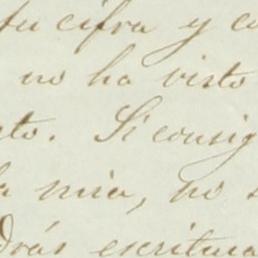 tu cifra y co
no ha visto
to. Si consig
la mia, no s
drás escritura